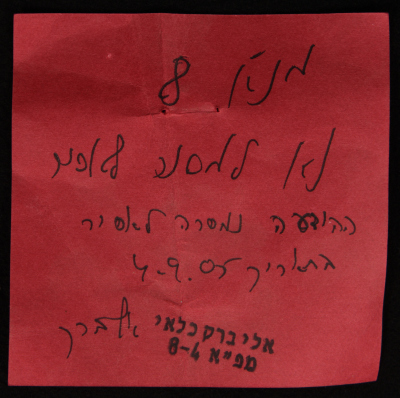 נא למסור לאסיר
ההודעה נמסרה לאסיר
בתאריך 4.9.05
אלי ברק כלאי
מפ״א 8-4